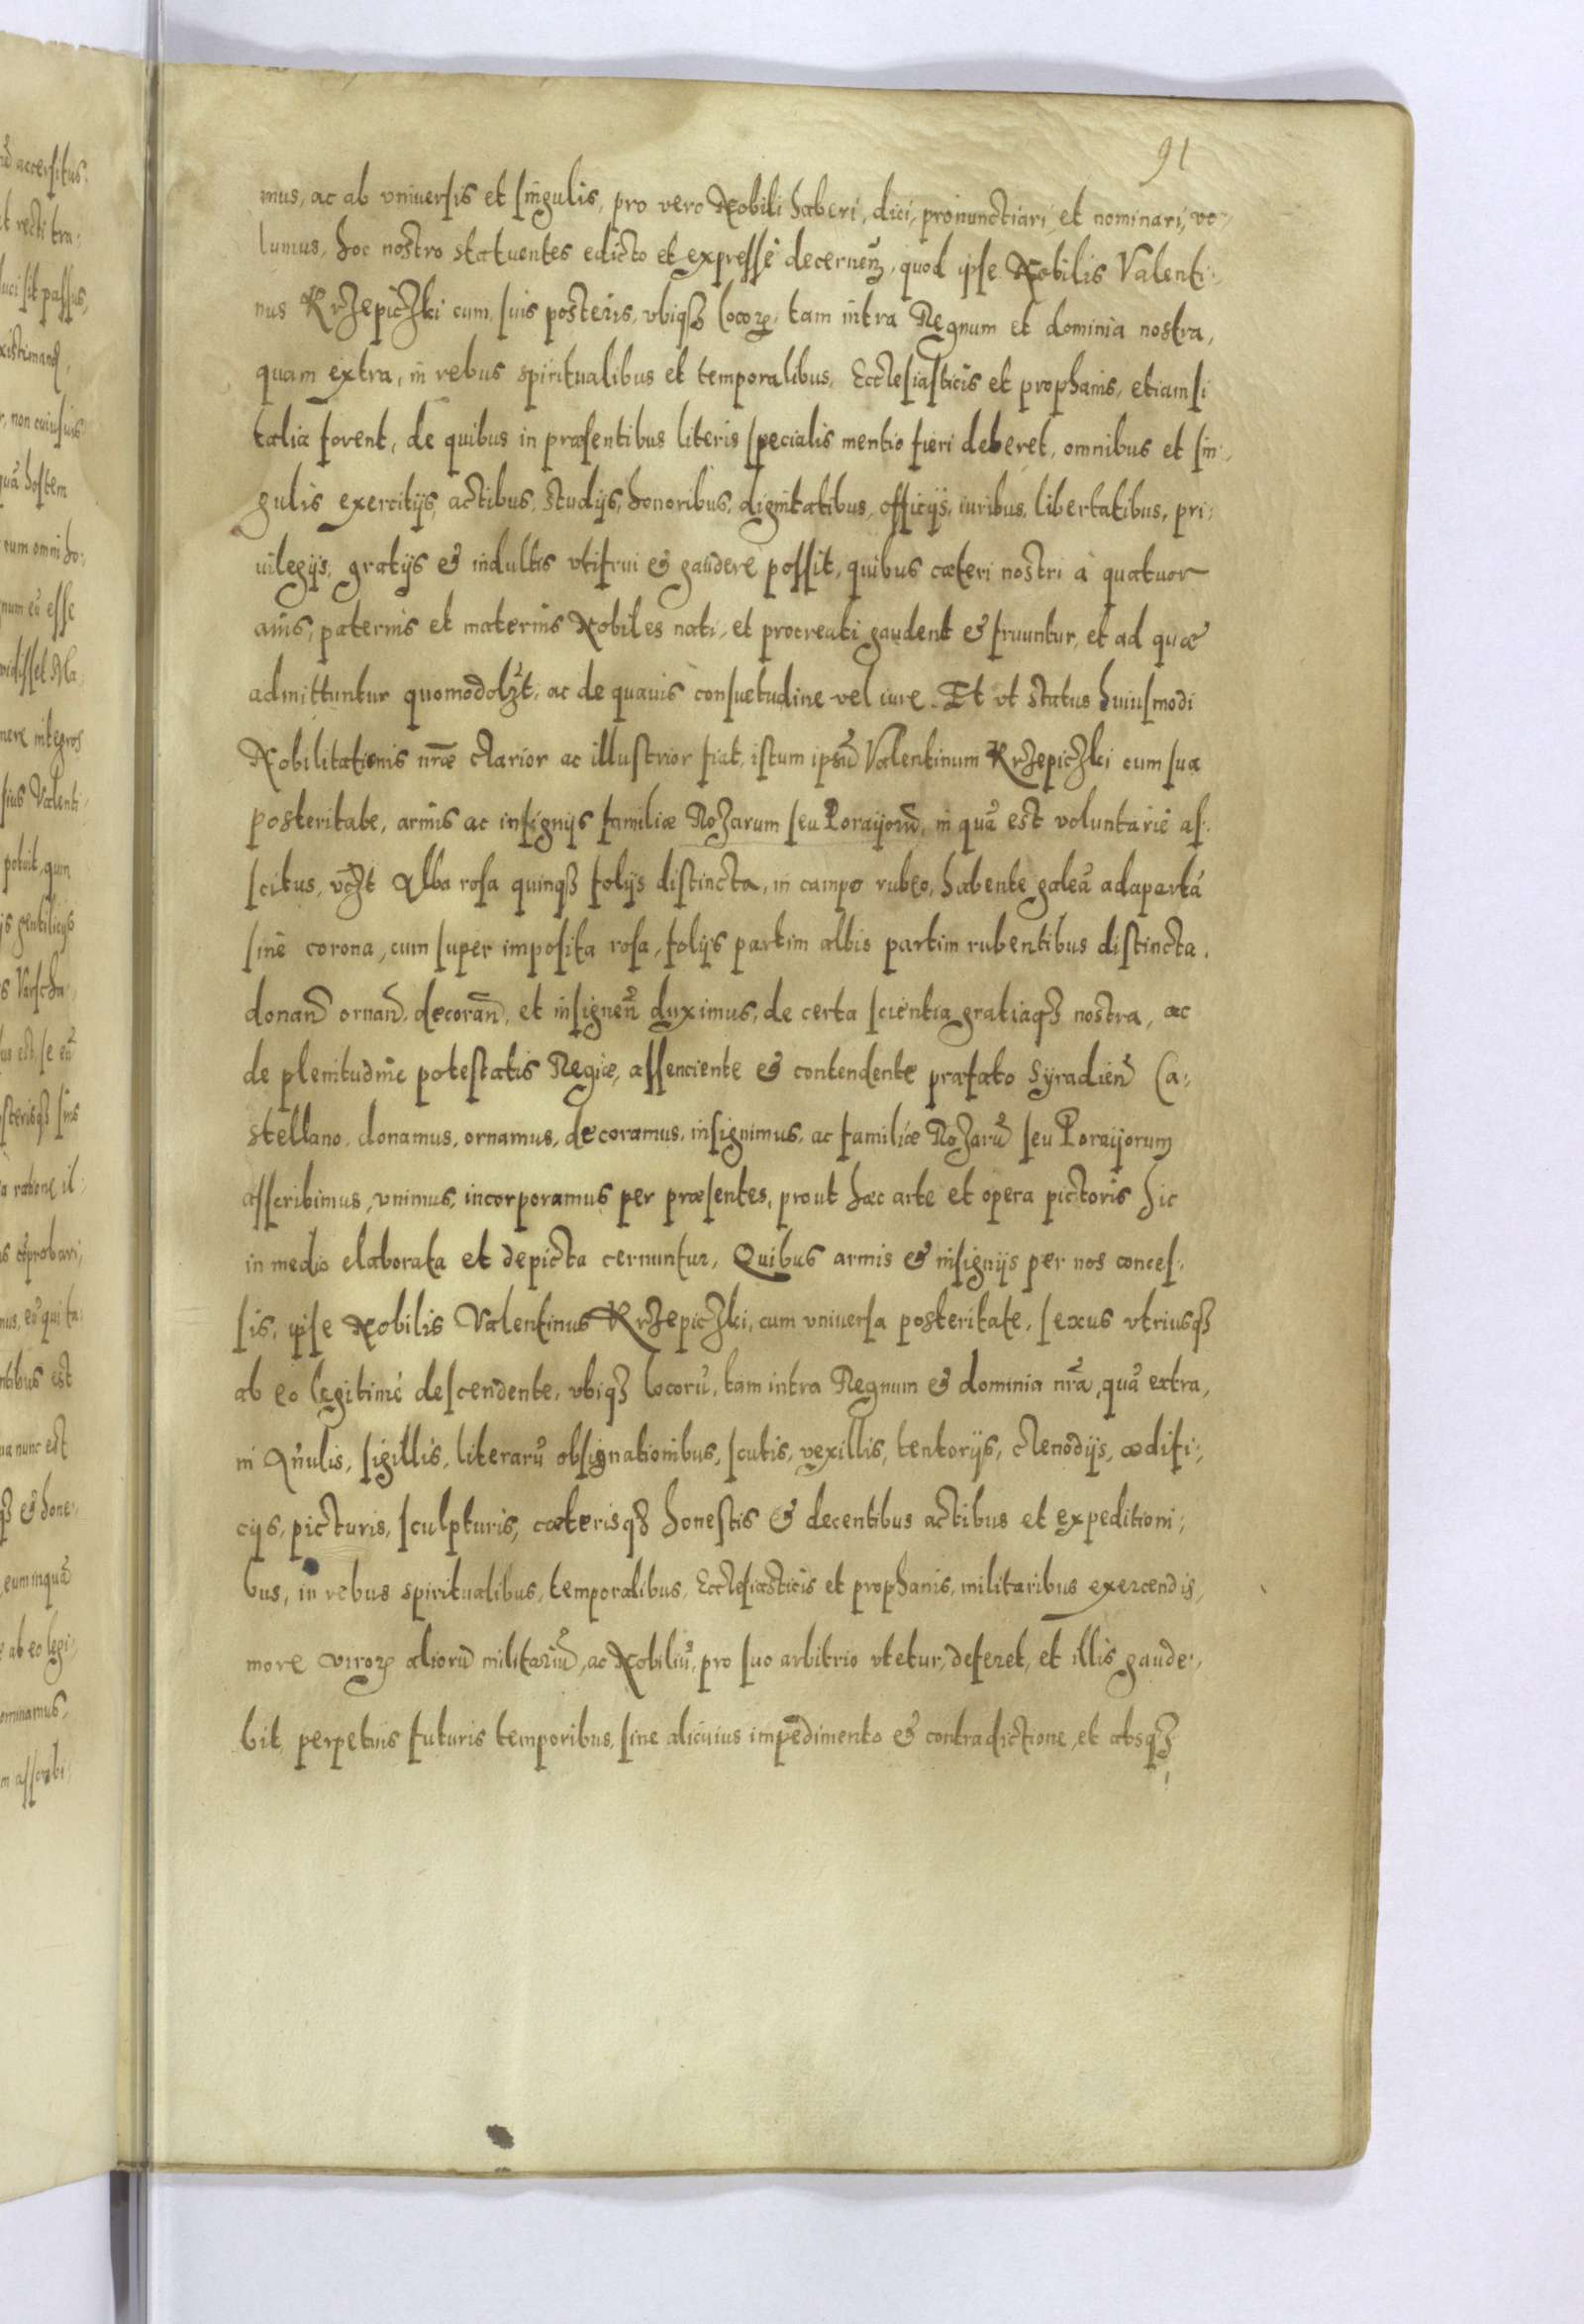 91
mus, ac ab vniuersis et singulis, pro vero Nobili haberi, dici, pronunctiari, et nominari, vo-
lumus, hoc nostro statuentes edicto et expressè decernen̄, quod ipse Nobilis Valenti-
nus Krzepiczki cum suis posteris, vbiqꝫ locoꝝ, tam intra Regnum et dominia nostra,
quam extra, in rebus spiritualibus et temporalibus, Ecclesiasticis et prophanis, etiam si
talia forent, de quibus in præsentibus literis specialis mentio fieri deberet, omnibus et sin-
gulis exercitijs, actibus, studijs, honoribus, dignitatibus, officijs, iuribus, libertatibus, pri-
uilegijs, gratijs & indultis vtifrui & gaudere possit, quibus cæteri nostri à quatuor
auis, paternis et maternis Nobiles nati, et procreati gaudent & fruuntur, et ad quæ
admittuntur quomodolꝫt, ac de quauis consuetudine vel iure. Et vt status huiusmodi
Nobilitationis nr̄æ clarior ac illustrior fiat, istum ipsū Valentinum Krzepiczki cum sua
posteritate, armis ac insignijs familiæ Rozarum seu Poraijorū, in quā est voluntariè as-
scitus, vꝫt Alba rosa quinqꝫ folijs distincta, in campo rubeo, habente galeā adapartā
sinè corona, cum super imposita rosa, folijs partim albis partim rubentibus distincta.
donan̄ ornan̄, decoran̄, et insignen̄ duximus, de certa scientia gratiaqꝫ nostra, ac
de plenitudine potestatis Regiæ, assenciente & contendente præfato Syradien̄ Ca-
stellano, donamus, ornamus, decoramus, insignimus, ac familiæ Rozarū seu Poraijorum
asscribimus, vnimus, incorporamus per præsentes, prout hæc arte et opera pictoris hic
in medio elaborata et depicta cernuntur, Quibus armis & insignijs per nos conces-
sis, ipse Nobilis Valentinus Krzepiczki, cum vniuersa posteritate, sexus vtriusqꝫ
ab eo legitimè descendente, vbiqꝫ locorū, tam intra Regnum & dominia nr̄a, quā extra,
in Anulis, sigillis, literarū obsignationibus, scutis, vexillis, tentorijs, clenodijs, ædifi-
cijs, picturis, sculpturis, cæterisqꝫ honestis & decentibus actibus et expeditioni-
bus, in rebus spiritualibus, temporalibus, Ecclesiasticis et prophanis, militaribus exercendis,
more viroꝝ aliorū militariū, ac Nobiliū, pro suo arbitrio vtetur, deferet, et illis gaude-
bit, perpetuis futuris temporibus, sine alicuius impedimento & contradictione, et absqꝫ